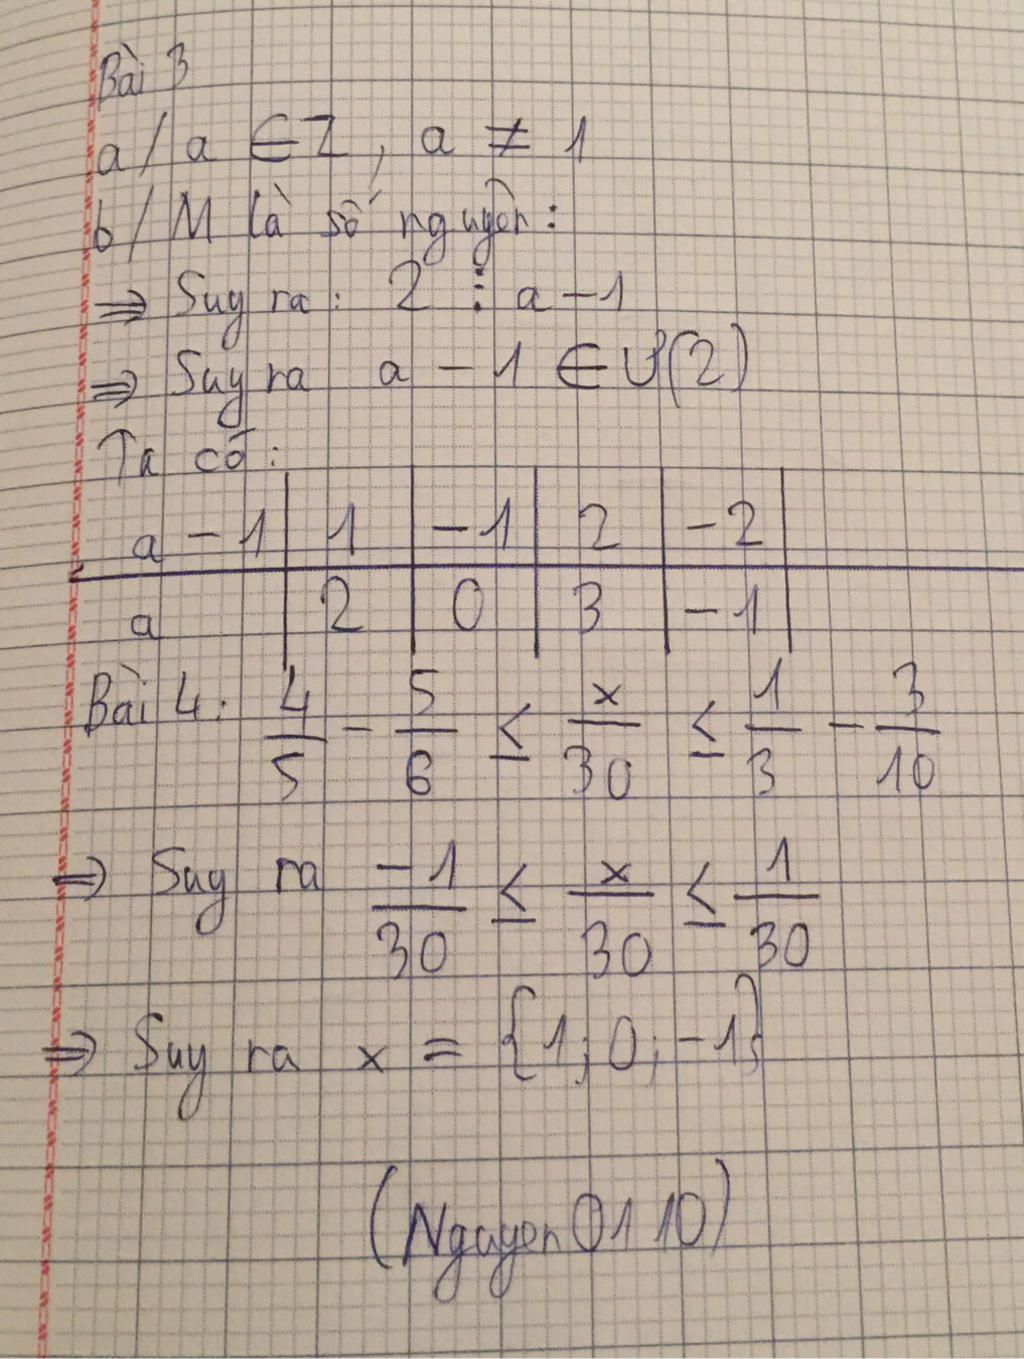 Bài 3
a/ a ∈ Z, a ≠ 1
b/ M là số nguyên:
⇒ Suy ra: 2 ⋮ a - 1
⇒ Suy ra a - 1 ∈ Ư(2)
Ta có:
a - 1 | 1 | -1 | 2 | -2
a | 2 | 0 | 3 | -1
Bài 4: 4/5 - 5/6 ≤ x/30 ≤ 1/3 - 3/10
⇒ Suy ra -1/30 ≤ x/30 ≤ 1/30
⇒ Suy ra x = {1; 0; -1}
(Nguyen0110)